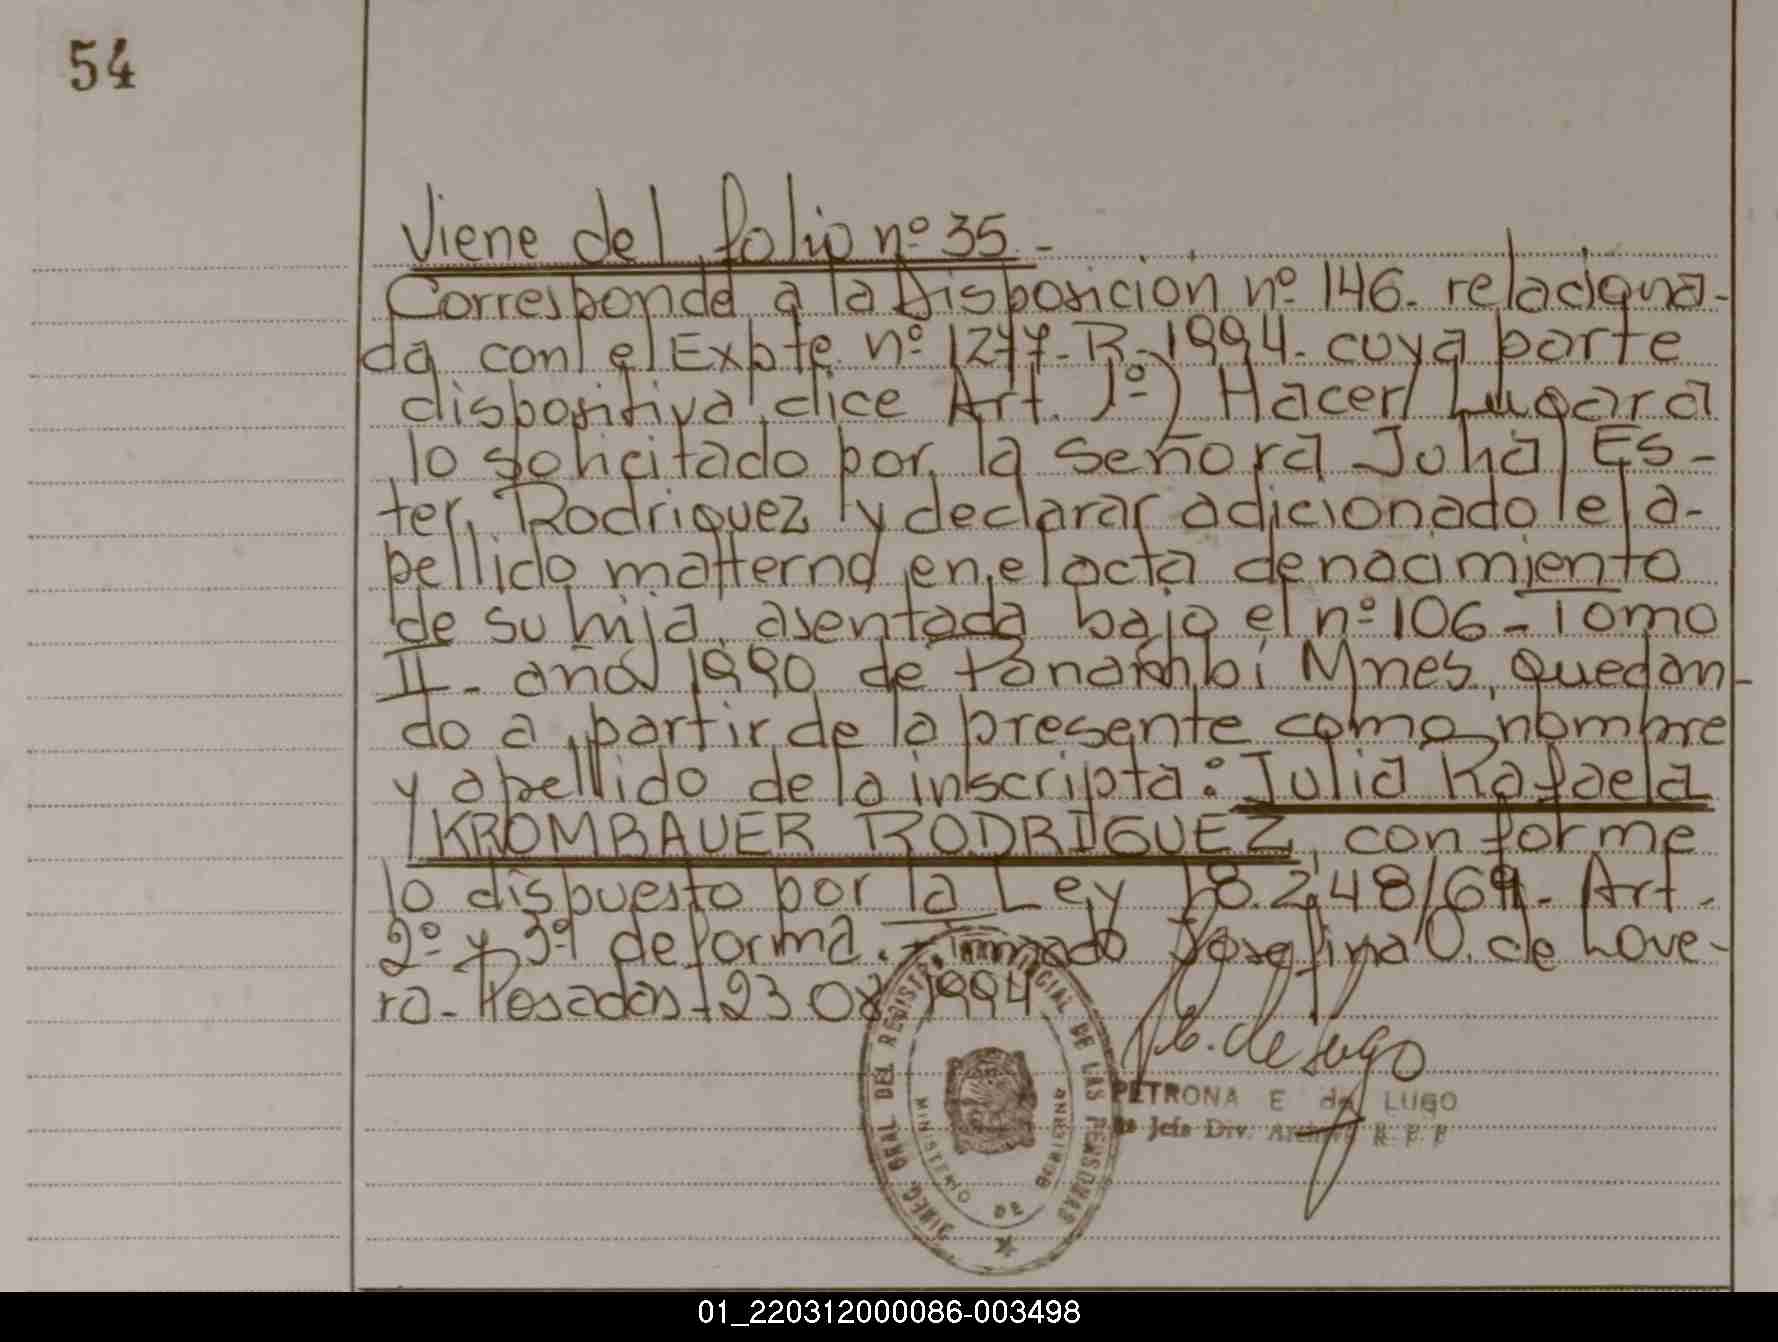 54
Viene del folio nº 35.-
Corresponde a la Disposicion nº 146. relaciona-
da con el Expte nº 1277-R-1994. cuya parte
dispositiva dice Art. 1º) Hacer Lugar a
lo solicitado por la señora Julia Es-
ter Rodriguez y declarar adicionado el a-
pellido matterno en el acta de nacimiento
de su hija, asentada bajo el nº 106 - Tomo
II - año 1990 de Panambi Mnes, quedan-
do a partir de la presente como nombre
y apellido de la inscripta: Julia Rafaela
KROMBAUER RODRIGUEZ, conforme
lo dispuesto por la Ley 18.248/69. Art.
2º y 3º de forma. Firmado Josefina O. de Love-
ra - Posadas - 23 08 1994
P.E. de Lugo
PETRONA E de LUGO
Jefe Div. Archivo R.P.P
DIREC. GRAL DEL REGISTRO PROVINCIAL DE LAS PERSONAS
MINISTERIO DE GOBIERNO
01_220312000086-003498